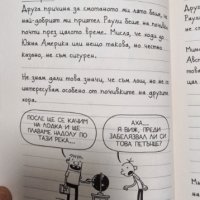 Друга причина за смотаното ми лято беше, че
най-добрият ми приятел Раули беше на почивка
почти през цялото време. Мисля, че ходи до
Южна Америка или нещо такова, но честно
казано, не съм сигурен.
Не знам дали това значи, че съм лош, но не се
интересувам особено от почивките на другите
хора.
ПОСЛЕ ЩЕ СЕ КАЧИМ
НА ЛОДКА И ЩЕ
ПЛАВАМЕ НАДОЛУ ПО
ТАЗИ РЕКА...
АХА...
Я ВИЖ, ПРЕДИ
ЗАБЕЛЯЗВАЛ ЛИ СИ
ТОВА ПЕТЪНЦЕ?
Друга